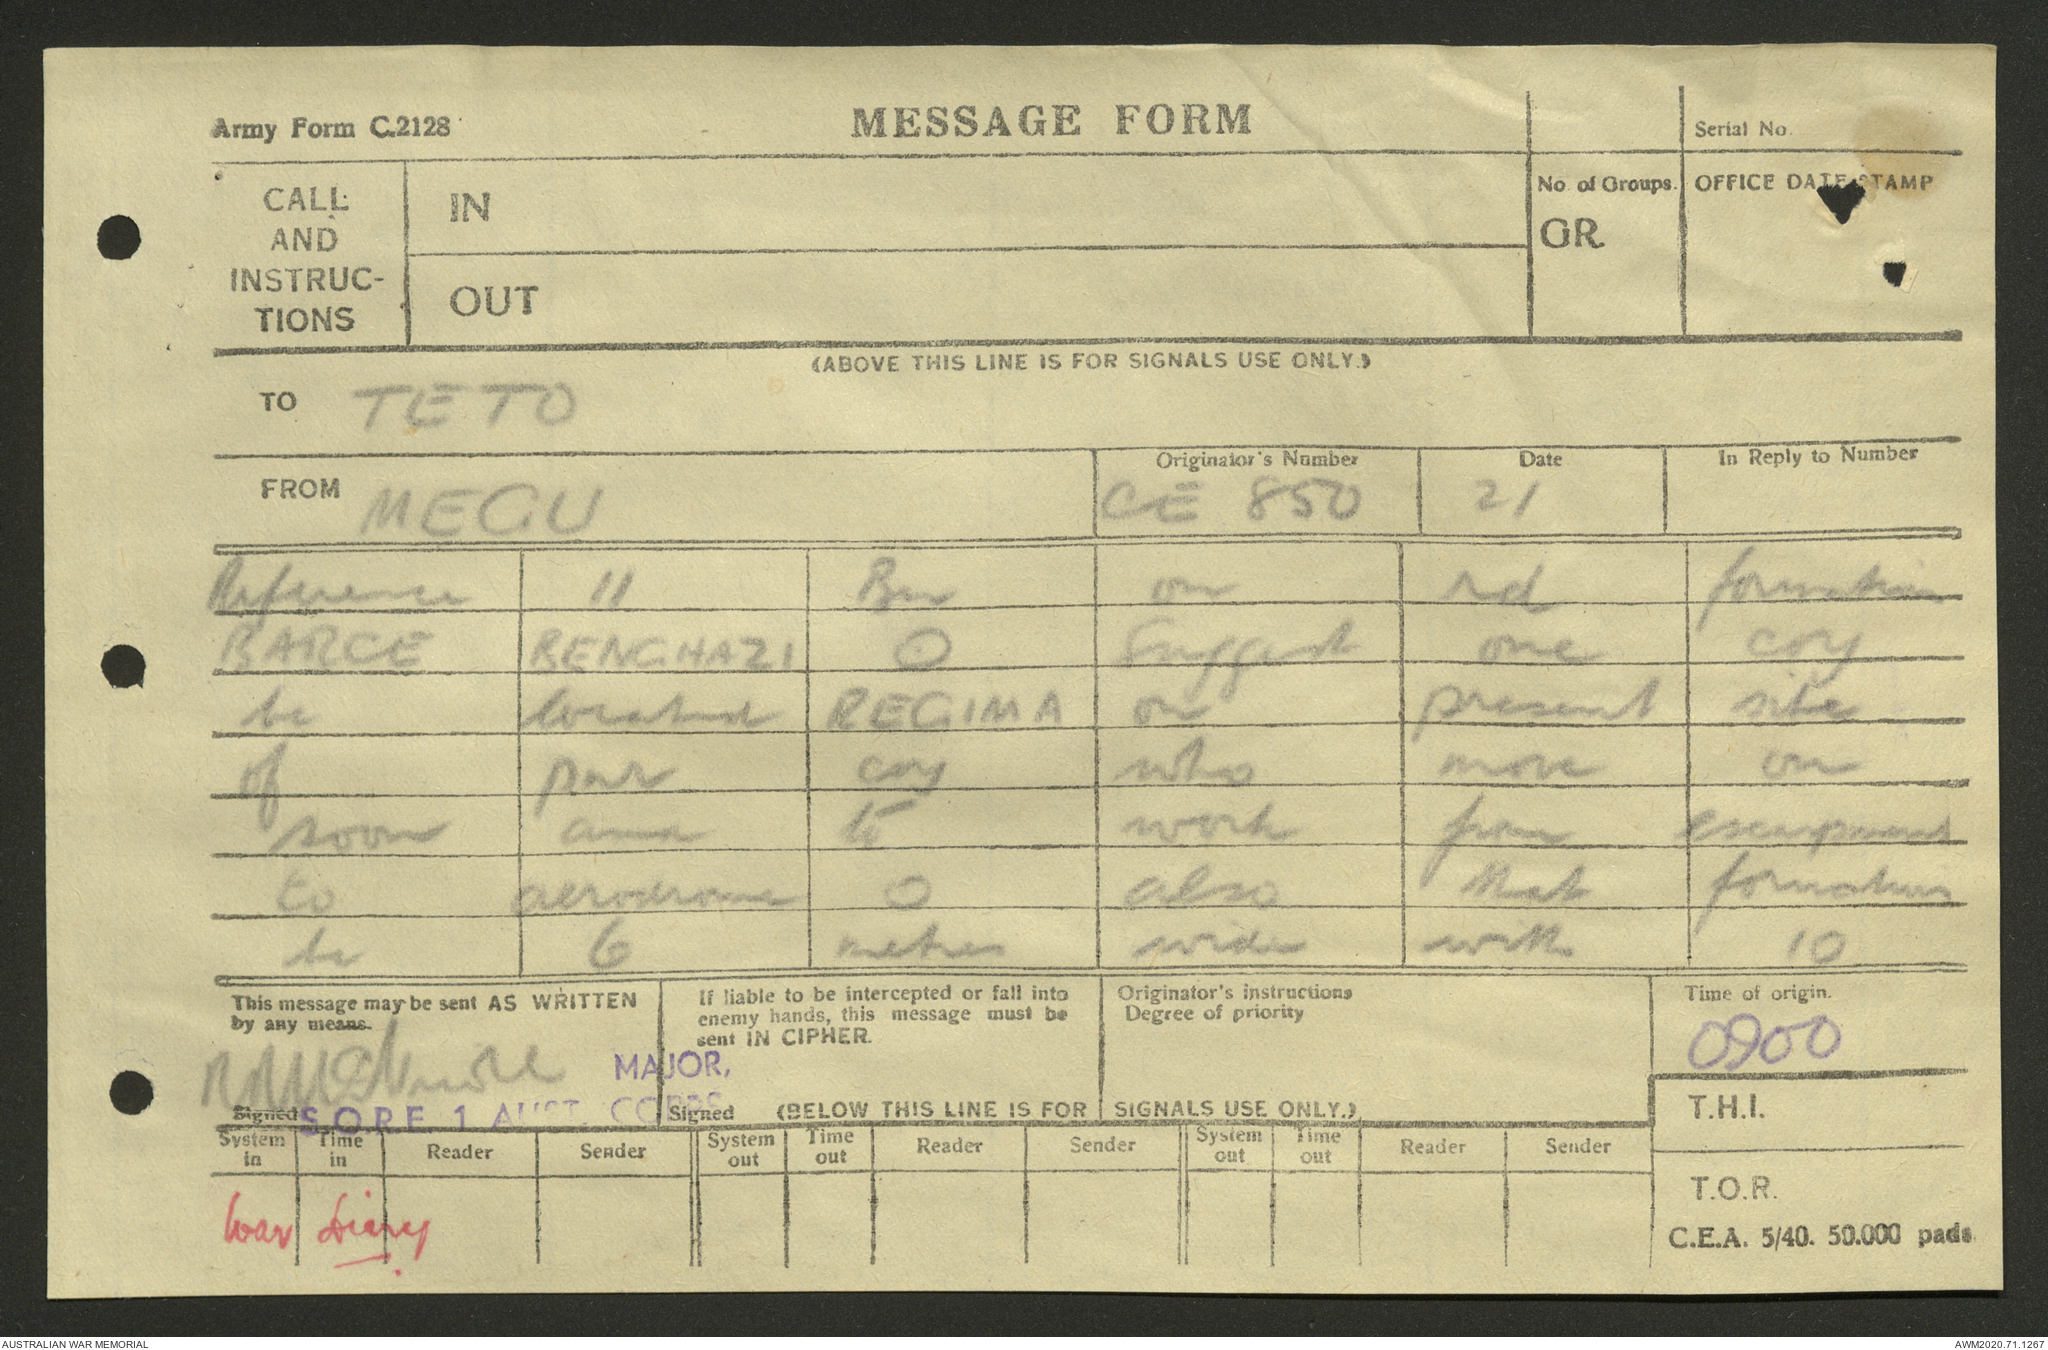 Army Form C.2128
MESSAGE FORM
Serial No.
CALL AND INSTRUC-TIONS
IN
OUT
No. of Groups.
GR.
OFFICE DATE STAMP
(ABOVE THIS LINE IS FOR SIGNALS USE ONLY.)
TO TETO
FROM MEGU
Originator's Number CE 850
Date 21
In Reply to Number
Reference 11 Bn on rd formation
BARCE BENGHAZI O Suggest one coy
be located REGIMA on present site
of coy who move on
soon and to work from escarpment
to aerodrome O also that formation
be 6 metres wide with 10
This message may be sent AS WRITTEN
by any means.
If liable to be intercepted or fall into
enemy hands, this message must be
sent IN CIPHER.
Originator's instructions
Degree of priority
Time of origin.
0900
MAJOR,
Signed S.O.R.E. 1 AUST. CORPS
Signed
(BELOW THIS LINE IS FOR SIGNALS USE ONLY.)
T.H.I.
System in Time in Reader Sender System out Time out Reader Sender System out Time out Reader Sender
T.O.R.
War Diary
C.E.A. 5/40. 50.000 pads
AUSTRALIAN WAR MEMORIAL
AWM2020.71.1267